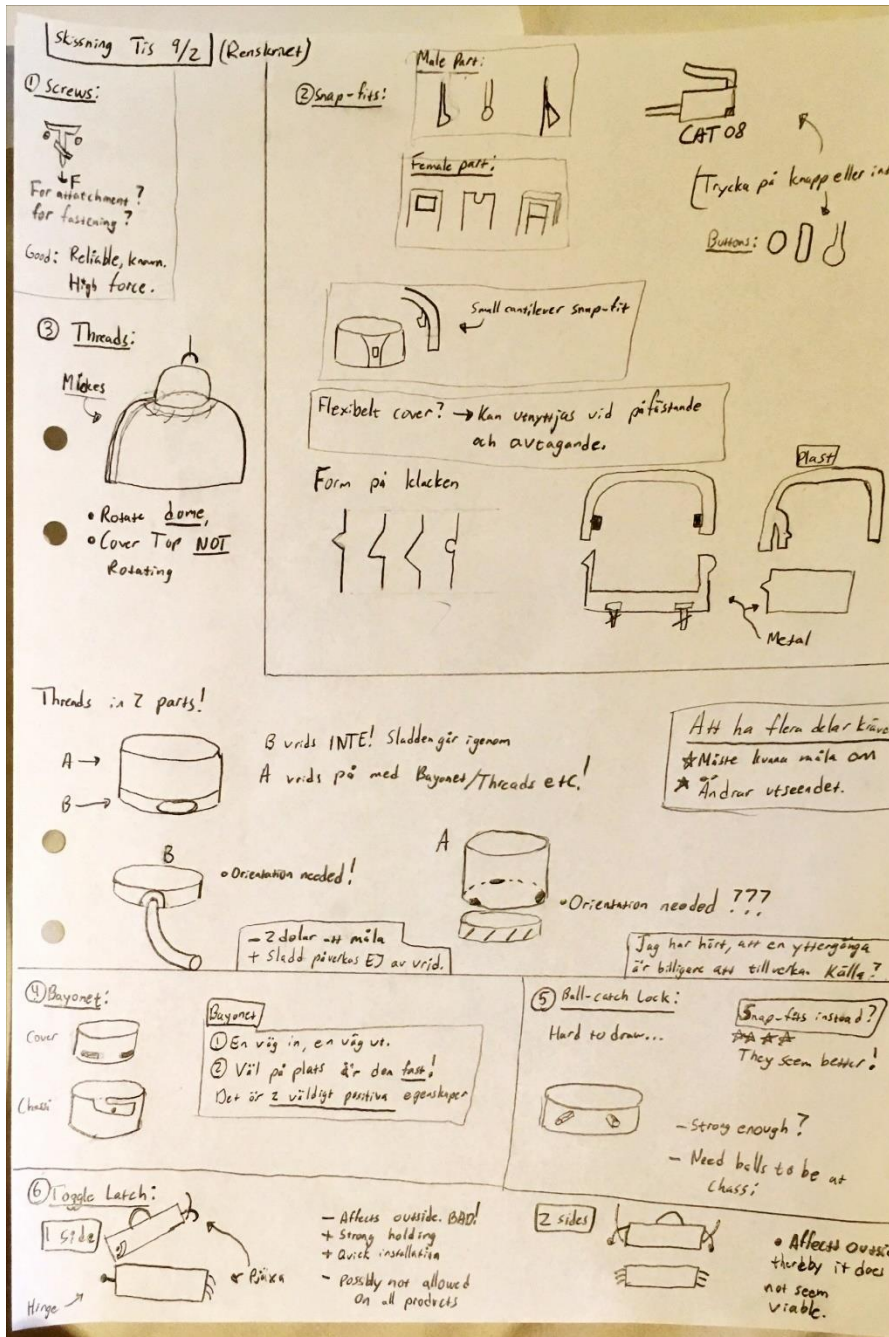 Skissning Tis 9/2 (Renskrivet)
① Screws:
F
For attatchment?
for fastening?
Good: Reliable, known.
High force.
② Snap-fits:
Male Part:
Female part:
CAT 08
Trycka på knapp eller
Buttons:
Small cantilever snap-fit
Flexibelt cover? → Kan utnyttjas vid påfästande
och avtagande.
Form på klacken
Plast
Metal
③ Threads:
• Rotate dome,
• Cover Top NOT
Rotating
Threads in 2 parts!
A →
B →
B vrids INTE! Sladden går igenom
A vrids på med Bayonet/Threads etc.!
Att ha flera delar
Måste kunna måla om
Ändrar utseendet.
B
• Orientation needed!
- 2 delar att måla
+ Sladd påverkas EJ av vrid.
A
• Orientation needed ???
Jag har hört, att en yttergänga
är billigare att tillverka. Källa?
④ Bayonet:
Cover
Chassi
Bayonet
① En väg in, en väg ut.
② Väl på plats är den fast!
Det är 2 väldigt positiva egenskaper
⑤ Ball-catch Lock:
Hard to draw...
Snap-fits instead?
They seem better!
- Strong enough?
- Need balls to be at
chassi
⑥ Toggle Latch:
1 side
Hinge →
Pjäxa
- Affects outside. BAD!
+ Strong holding
+ Quick installation
- Possibly not allowed
on all products
2 sides
• Affects
thereby it does
not seem
viable.